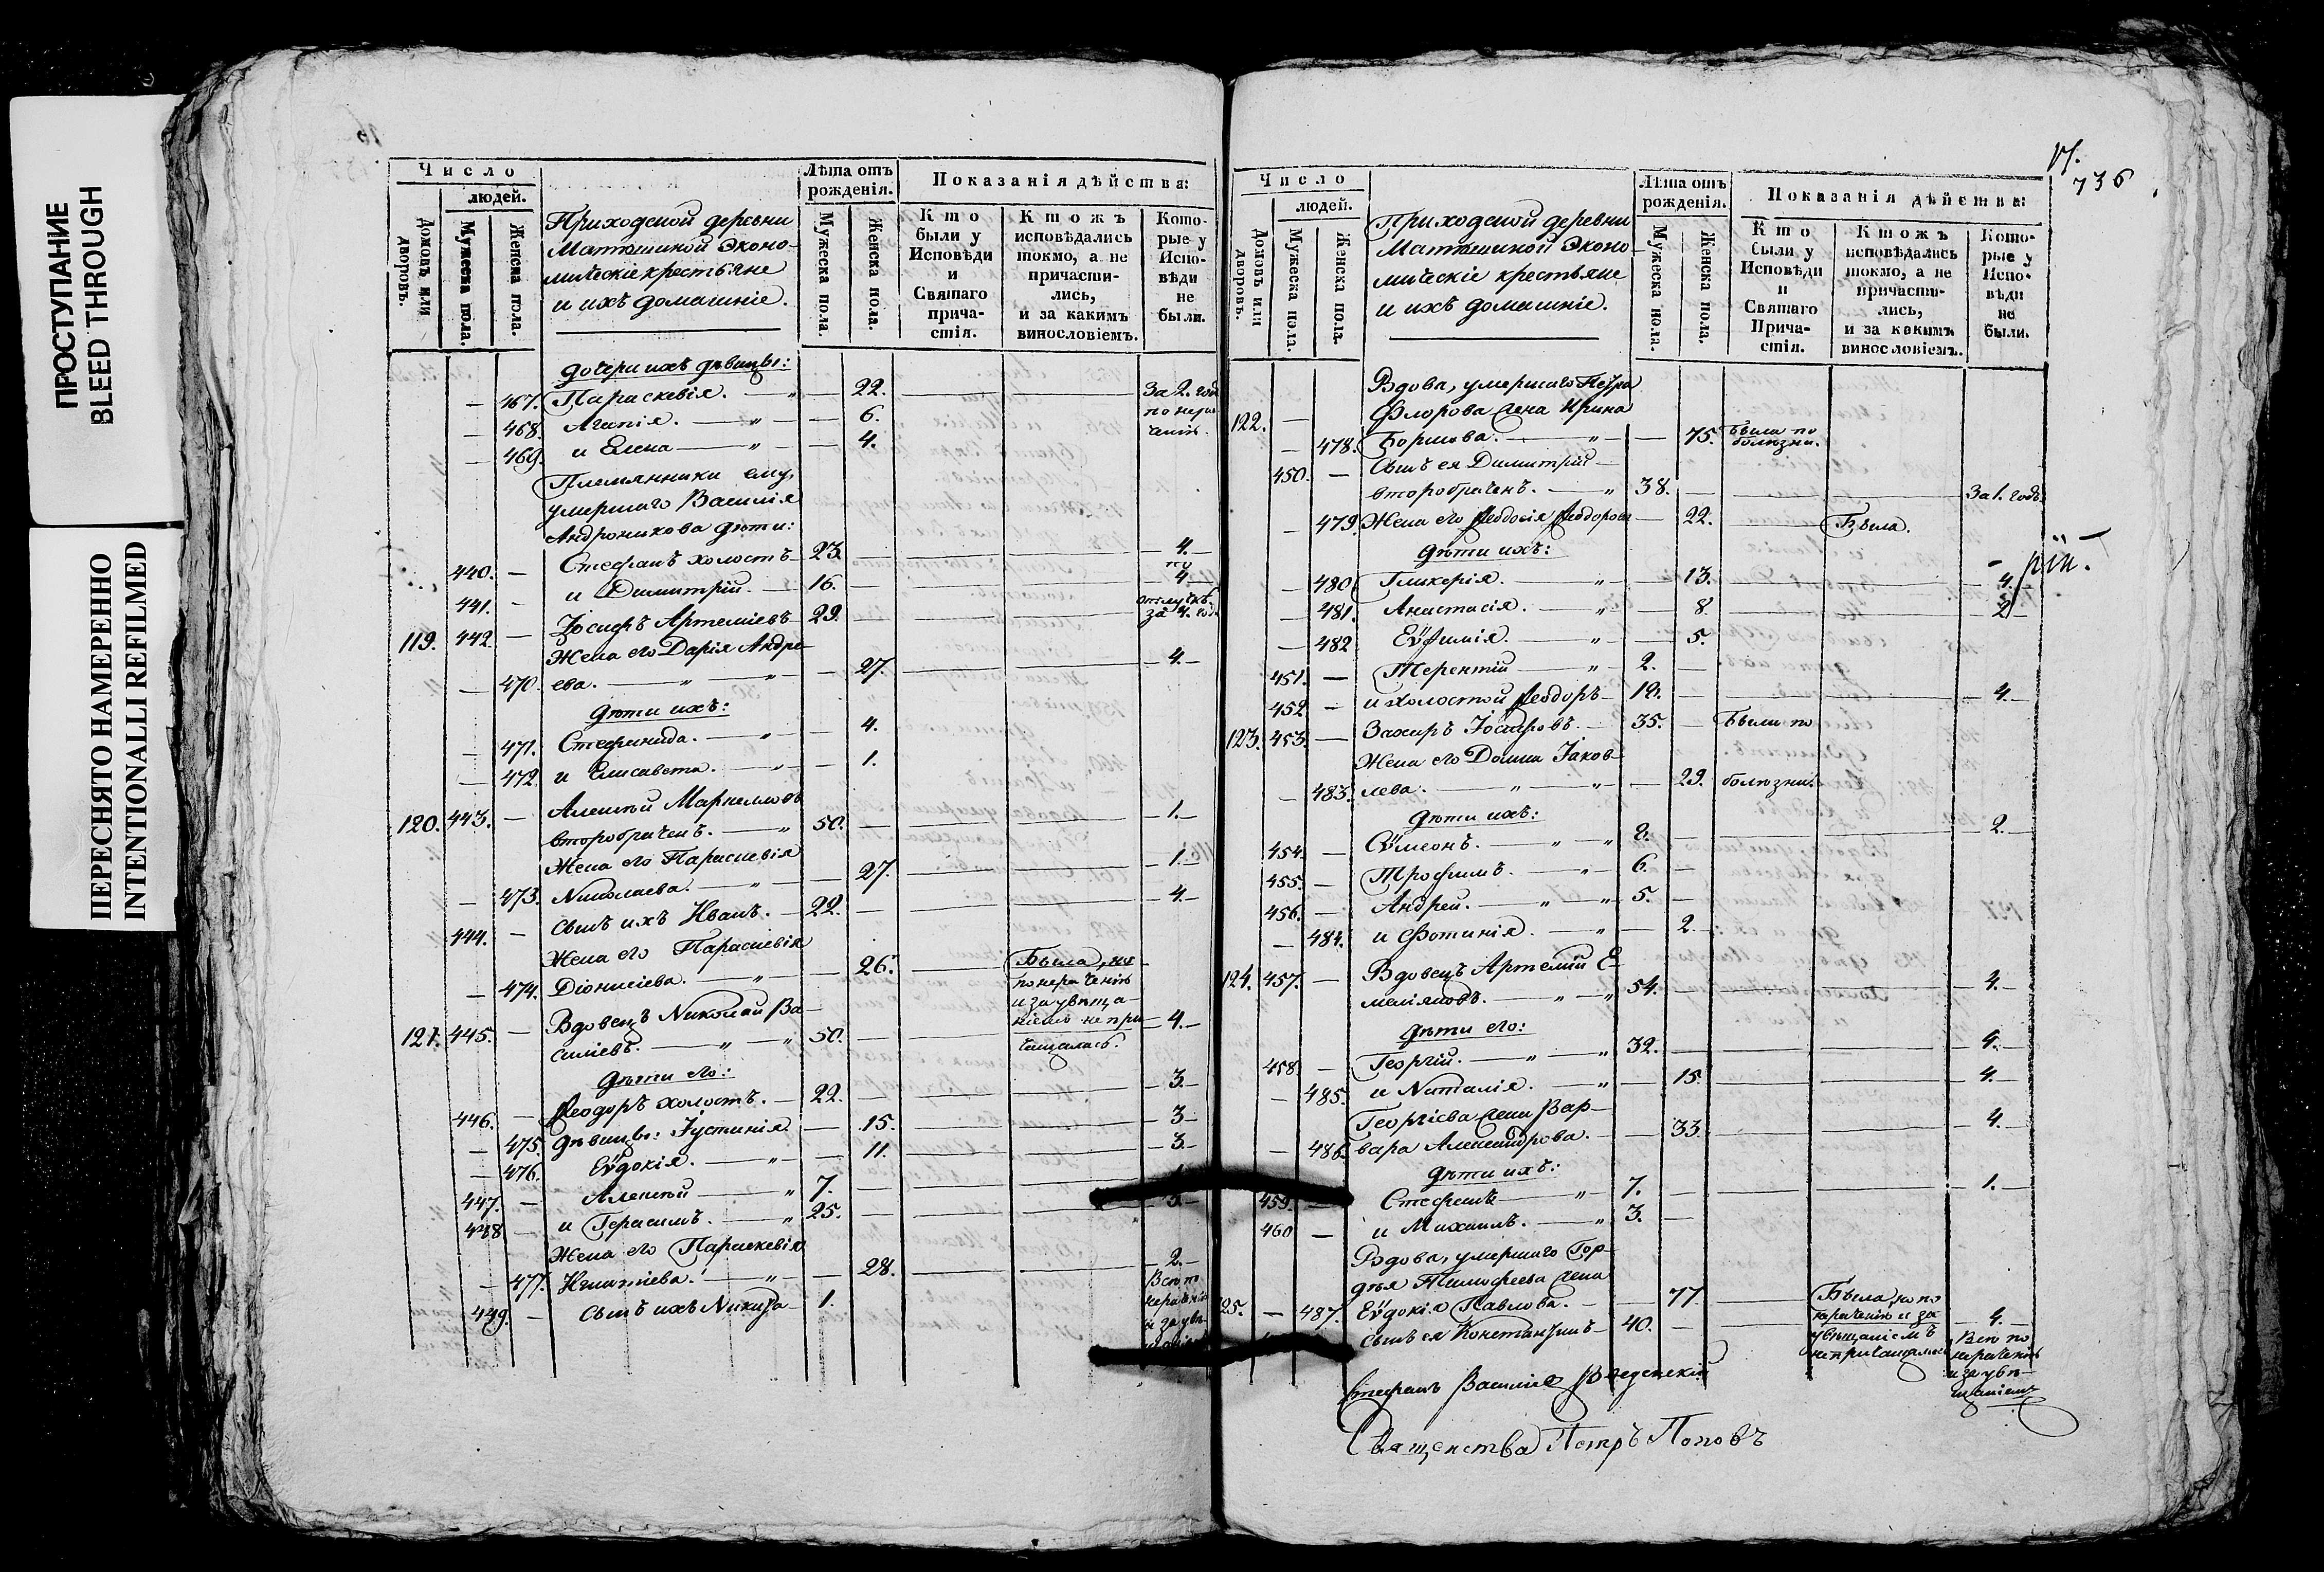 ПРОСТУПАНИЕ
BLEED THROUGH
ПЕРЕСНЯТО НАМЕРЕННО
INTENTIONALLI REFILMED
Число
людей.
Домовъ или дворовъ.
Мужеска пола.
Женска пола.
Приходской деревни
экономическіе крестьяне
и ихъ домашніе.
Лѣта отъ рожденія.
Мужеска пола.
Женска пола.
Показанія дѣйства:
Кто были у Исповѣди и Святаго причастія.
Ктожъ исповѣдались токмо, а не причастились, и за какимъ винословіемъ.
Которые у Исповѣди не были.
дочери ихъ дѣвицы:
— 467. Параскевія. — 22. За 2. года
— 468. Агапія. — 6. по нера-
— 469. и Елена — 4. ченію.
Племянники ему,
умершаго Василія
Андроникова дѣти:
440. — Стефанъ холостъ 23. 4.
441. — и Димитрій. 16. 4
119. 442. — Іосифъ Артеміевъ 29. за 4. года
Жена его Дарія Андре-
— 470. ева. — 27. 4.
дѣти ихъ:
— 471. Стефанида. — 4.
— 472. и Елисавета. — 1.
120. 443. — Алексѣй
второбраченъ. 50. 1.
Жена его Параскевія
— 473. Николаева. — 27. 1.
444. — Сынъ ихъ Иванъ. 22. 4.
Жена его Параскевія
— 474. Діонисіева. — 26. Была, но
по нераченію
и за увѣща-
ніемъ не при-
чащалась.
121. 445. — Вдовецъ Николай Ва-
силіевъ. 50. 4.
дѣти его:
446. — Ѳеодоръ холостъ. 22. 3.
— 475. дѣвицы: Іустинія — 15. 3
— 476. Еѵдокія. — 11. 3.
447. — Алексѣй 7.
448 — и Герасимъ. 25. 3
Жена его Параскевія
— 477. Игнатіева. — 28. 2.
449. — Сынъ ихъ Никита 1.
Всѣ по
нераченію
и за увѣ-
17.
736
Число
людей.
Домовъ или дворовъ.
Мужеска пола.
Женска пола.
Приходской деревни
экономическіе крестьяне
и ихъ домашніе.
Лѣта отъ рожденія.
Мужеска пола.
Женска пола.
Показанія дѣйства:
Кто были у Исповѣди и Святаго Причастія.
Ктожъ исповѣдались токмо, а не причастились, и за какимъ винословіемъ.
Которые у Исповѣди не были.
Вдова, умершаго Петра
122. — Флорова жена Ирина
— 478. Борисова. — 75. Была по болѣзни.
450. — Сынъ ея Димитрій
второбраченъ. 38. За 1. годъ
— 479. Жена его Ѳеодосія Ѳеодорова — 22. Была.
дѣти ихъ:
— 480. Гликерія. — 13. 4.
— 481. Анастасія. — 8 2
— 482 Еѵѳимія. — 5.
451. — Терентій 2.
452 — и холостой Ѳеодоръ 19. 4
123. 453. — Захаръ Іосифовъ. 35. — Были по
Жена его Домна Іаков-
— 483. лева. — 29. болѣзни.
дѣти ихъ:
454. — Сѵмеонъ. 8. 2.
455. — Трофимъ. 6.
456. — Андрей. 5.
— 484. и Фотинія. — 2.
124. 457. — Вдовецъ Артемій Е-
меліяновъ. 54. 4.
дѣти его:
458 — Георгій. 32. 4.
— 485. и Наталія. — 15. 4.
Георгіева жена Вар-
— 486. вара Александрова. — 33. 4.
дѣти ихъ:
459. — Стефанъ 7. 1.
460 — и Михаилъ. 3.
Вдова, умершаго Гор-
дѣя Тимофеева жена
125. — 487. Еѵдокія Павлова. — 77. Была, но по
нераченію и за
увѣщаніемъ
не причащалась
Сынъ ея Константинъ 40. 4.
Всѣ по
нераченію
и за увѣ-
щаніемъ
Стефанъ Василіевъ Введенскій
Священства Петръ Поповъ